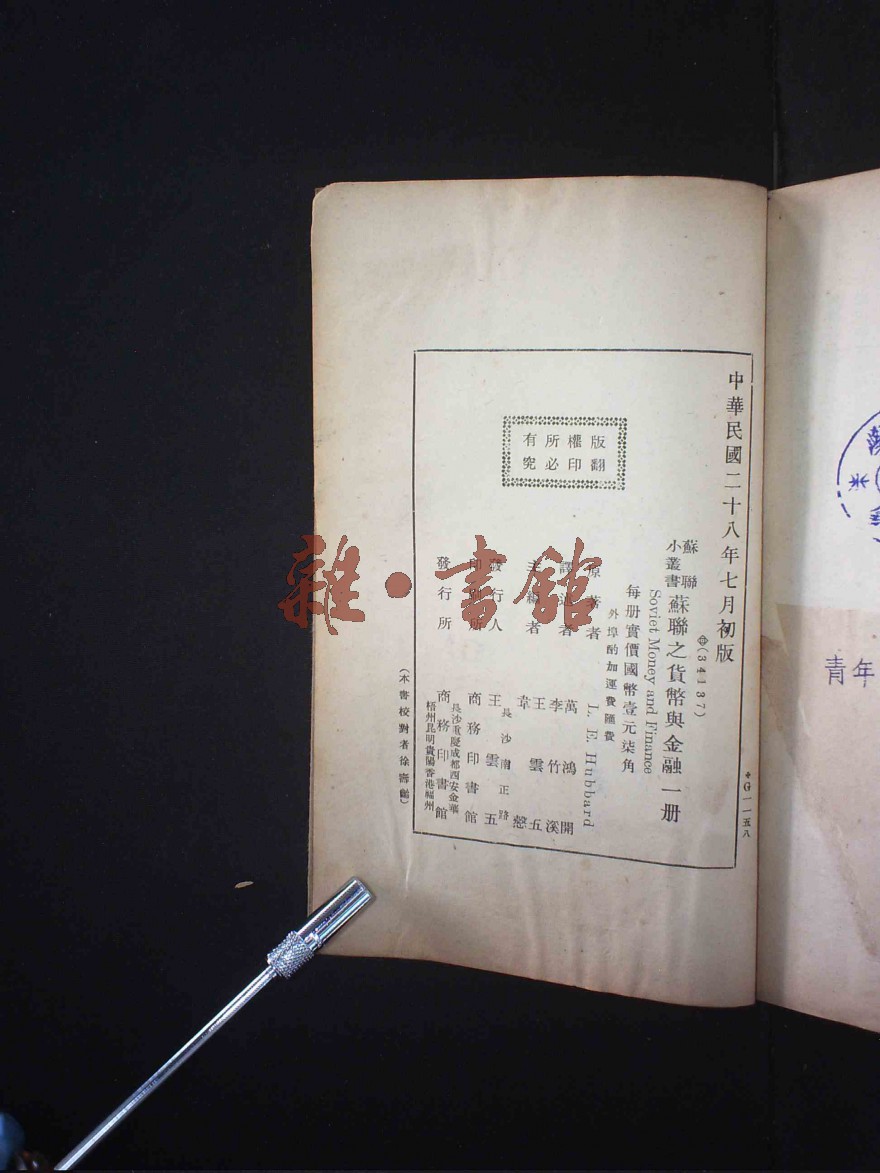 中華民國二十八年七月初版
(34137)
蘇聯小叢書
蘇聯之貨幣與金融一册
Soviet Money and Finance
每册實價國幣壹元柒角
外埠酌加運費匯費
原著者 L. E. Hubbard
譯述者 萬鴻開 李竹溪
主編者 王雲五 韋慤
發行人 王雲五
長沙南正路
印刷所 商務印書館
發行所 商務印書館
長沙重慶成都西安金華
梧州昆明貴陽香港福州
(本書校對者徐壽齡)
版權所有
翻印必究
G一一五八
雜·書館
青年